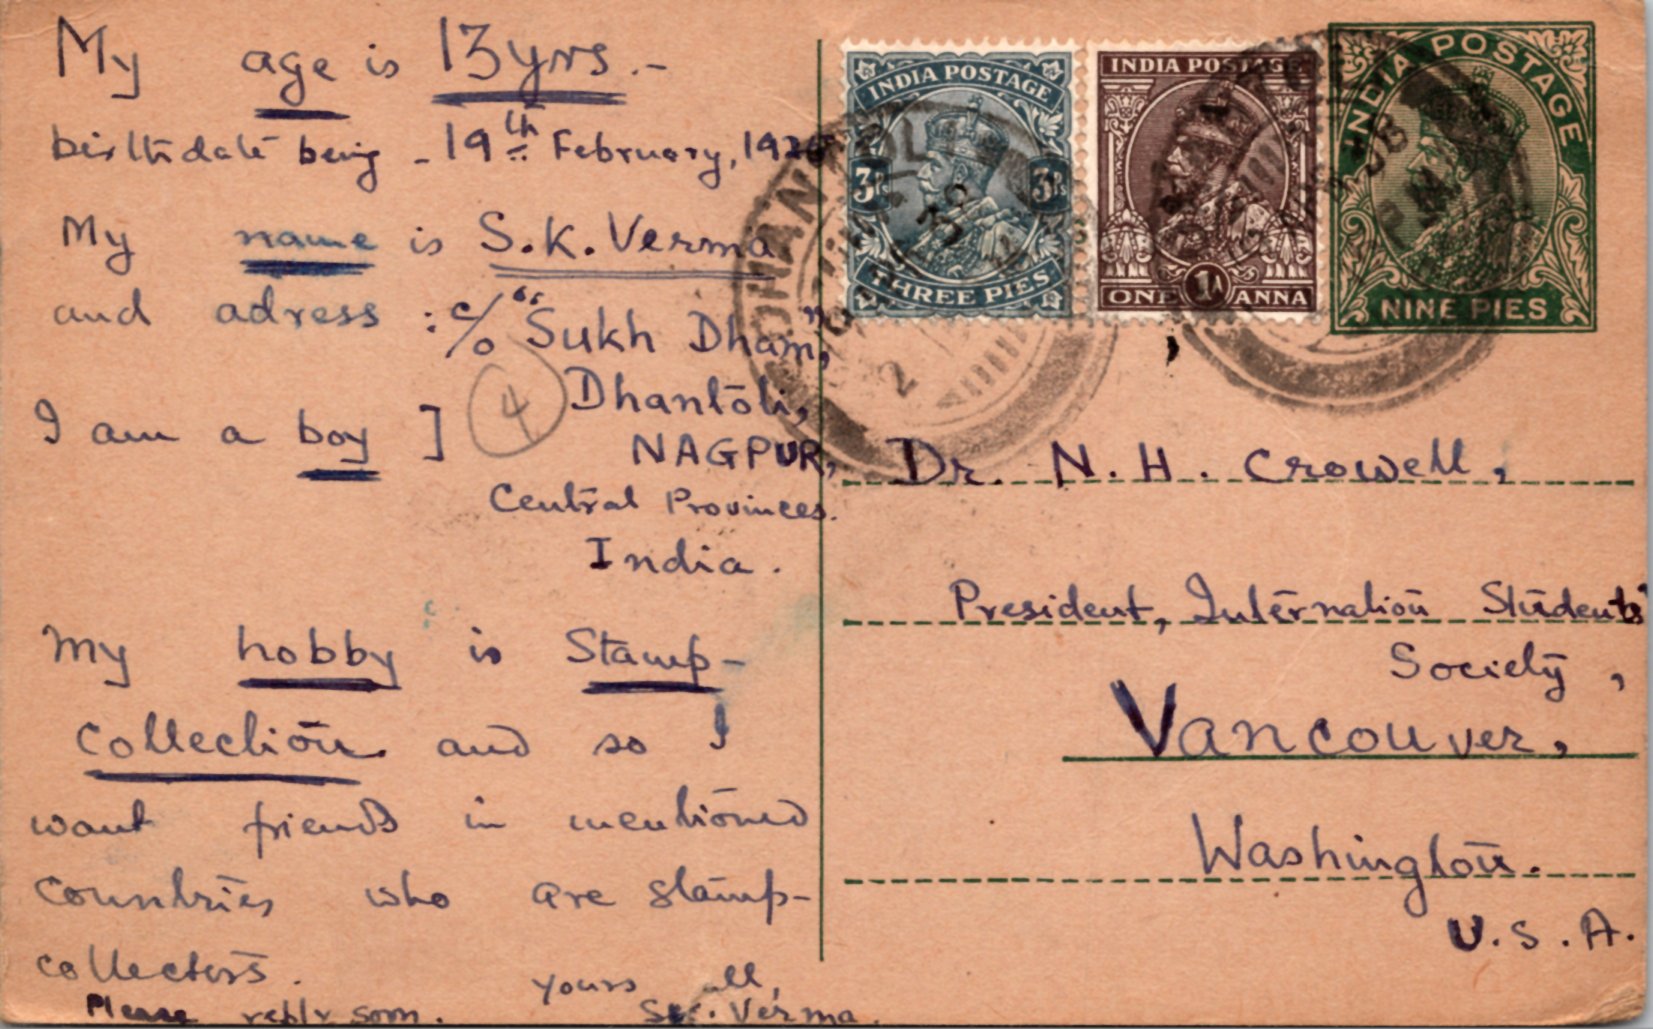 My age is 13 yrs.-
birthdate being - 19th February, 192
My name is S.K. Verma
and adress : c/o "Sukh Dham",
Dhantoli,
NAGPUR,
Central Provinces.
India.
I am a boy ]
4
My hobby is Stamp-
Collection and so I
want friends in mentioned
countries who are stamp-
collectors.
Please reply soon.
yours
S. Verma.
INDIA POSTAGE
3Ps 3Ps
THREE PIES
INDIA POSTAGE
1A
ONE ANNA
INDIA POSTAGE
NINE PIES
Dr. N. H. Crowell,
President, Internation Students'
Society,
Vancouver,
Washington.
U.S.A.